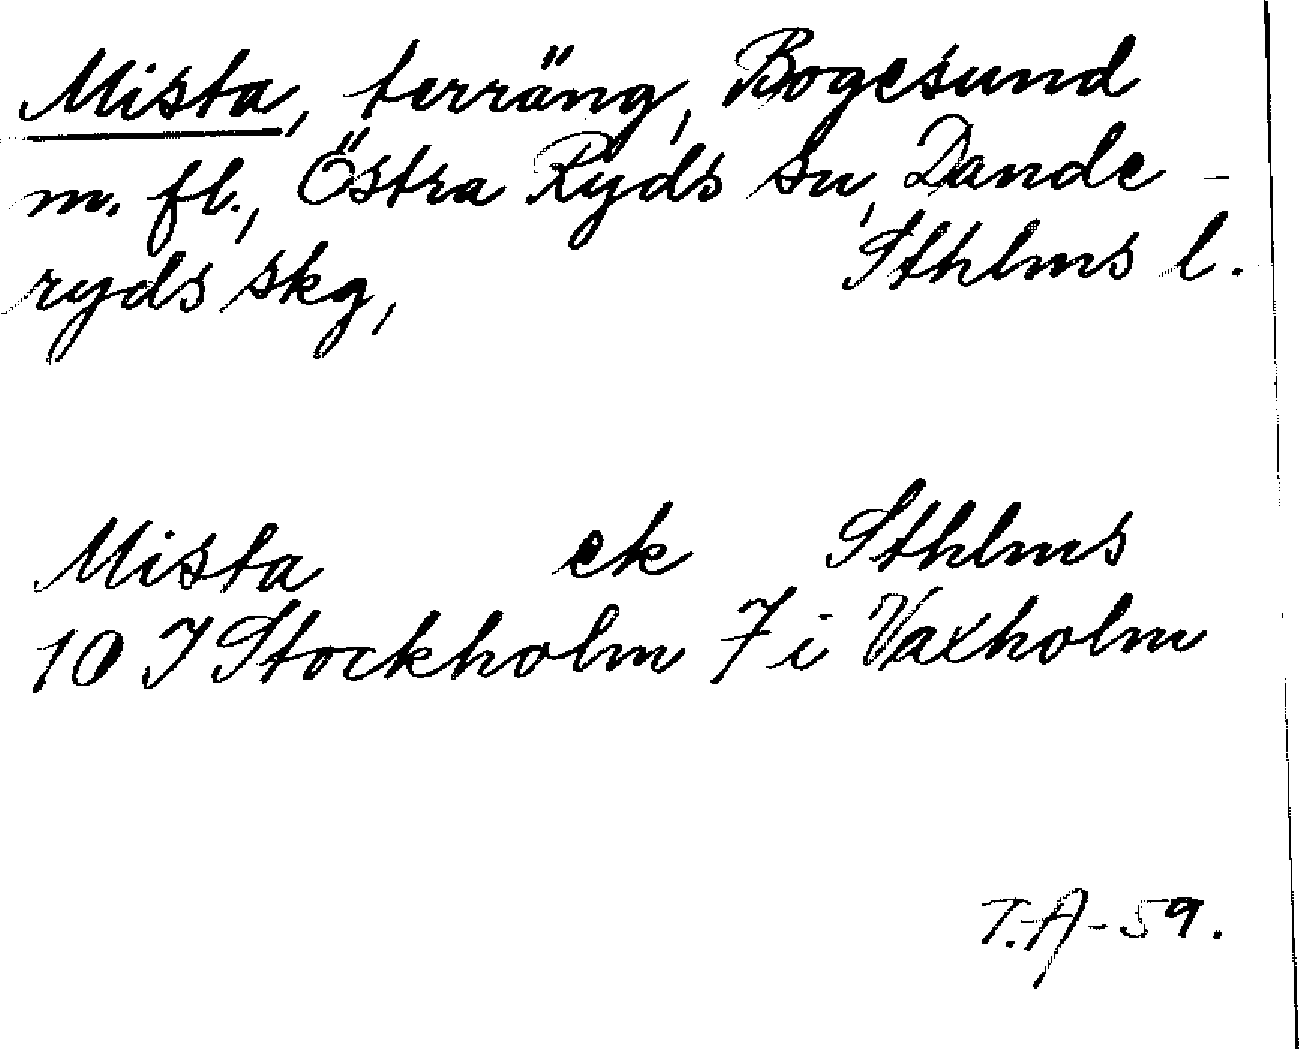 Mista, terräng, Bogesund
m. fl., Östra Ryds sn, Dande-
ryds skg, Sthlms l.
Mista ek Sthlms
10 I Stockholm 7 i Vaxholm
T.A-59.